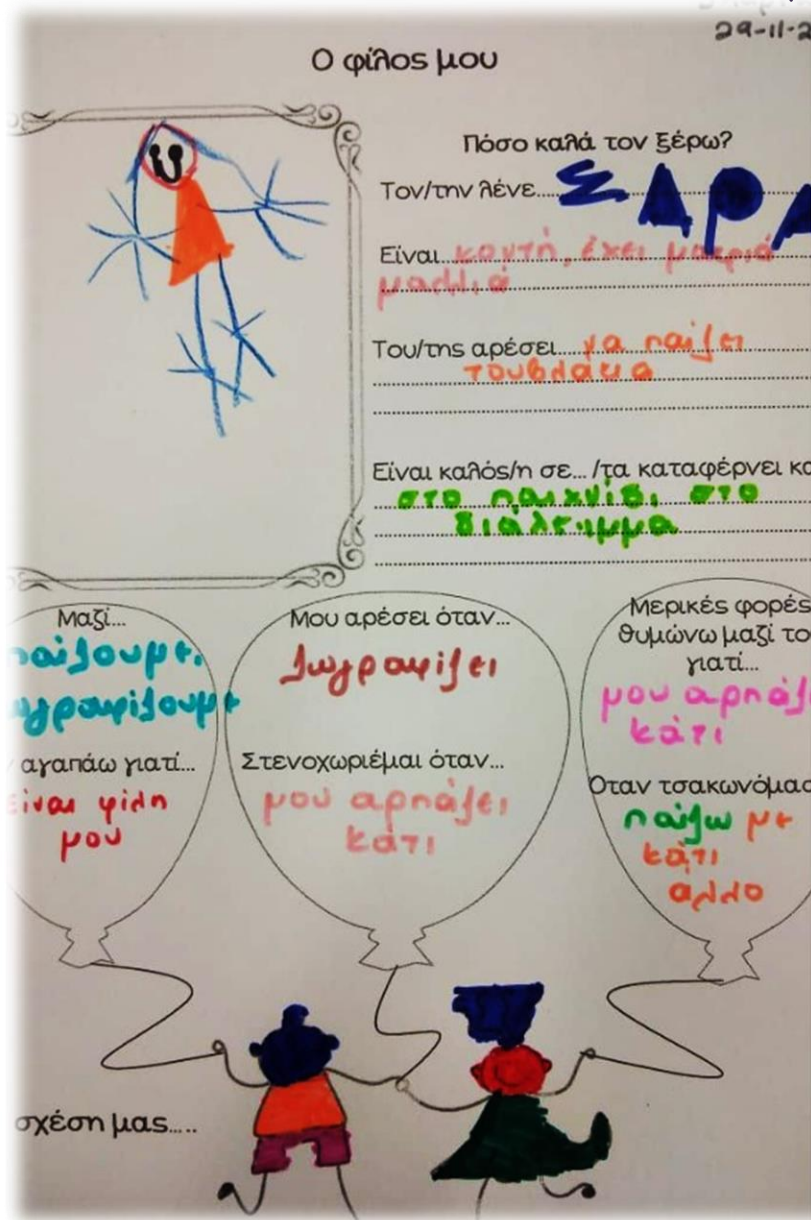 29-11-2
Ο φίλος μου
Πόσο καλά τον ξέρω?
Τον/την λένε.....ΣΑΡΑ
Είναι...κοντή, έχει μακριά
μαλλιά
Του/της αρέσει.....να παίζει
τουβλακια
Είναι καλός/η σε... /τα καταφέρνει κα
στο παιχνίδι στο
διάλειμμα
Μαζί...
παίζουμε.
ζωγραφίζουμε
αγαπάω γιατί...
είναι φίλη
μου
Μου αρέσει όταν...
ζωγραφίζει
Στενοχωριέμαι όταν...
μου αρπάζει
κάτι
Μερικές φορές
θυμώνω μαζί το
γιατί...
μου αρπάζει
κάτι
Όταν τσακωνόμασ
παίζω με
κάτι
αλλο
σχέση μας.....